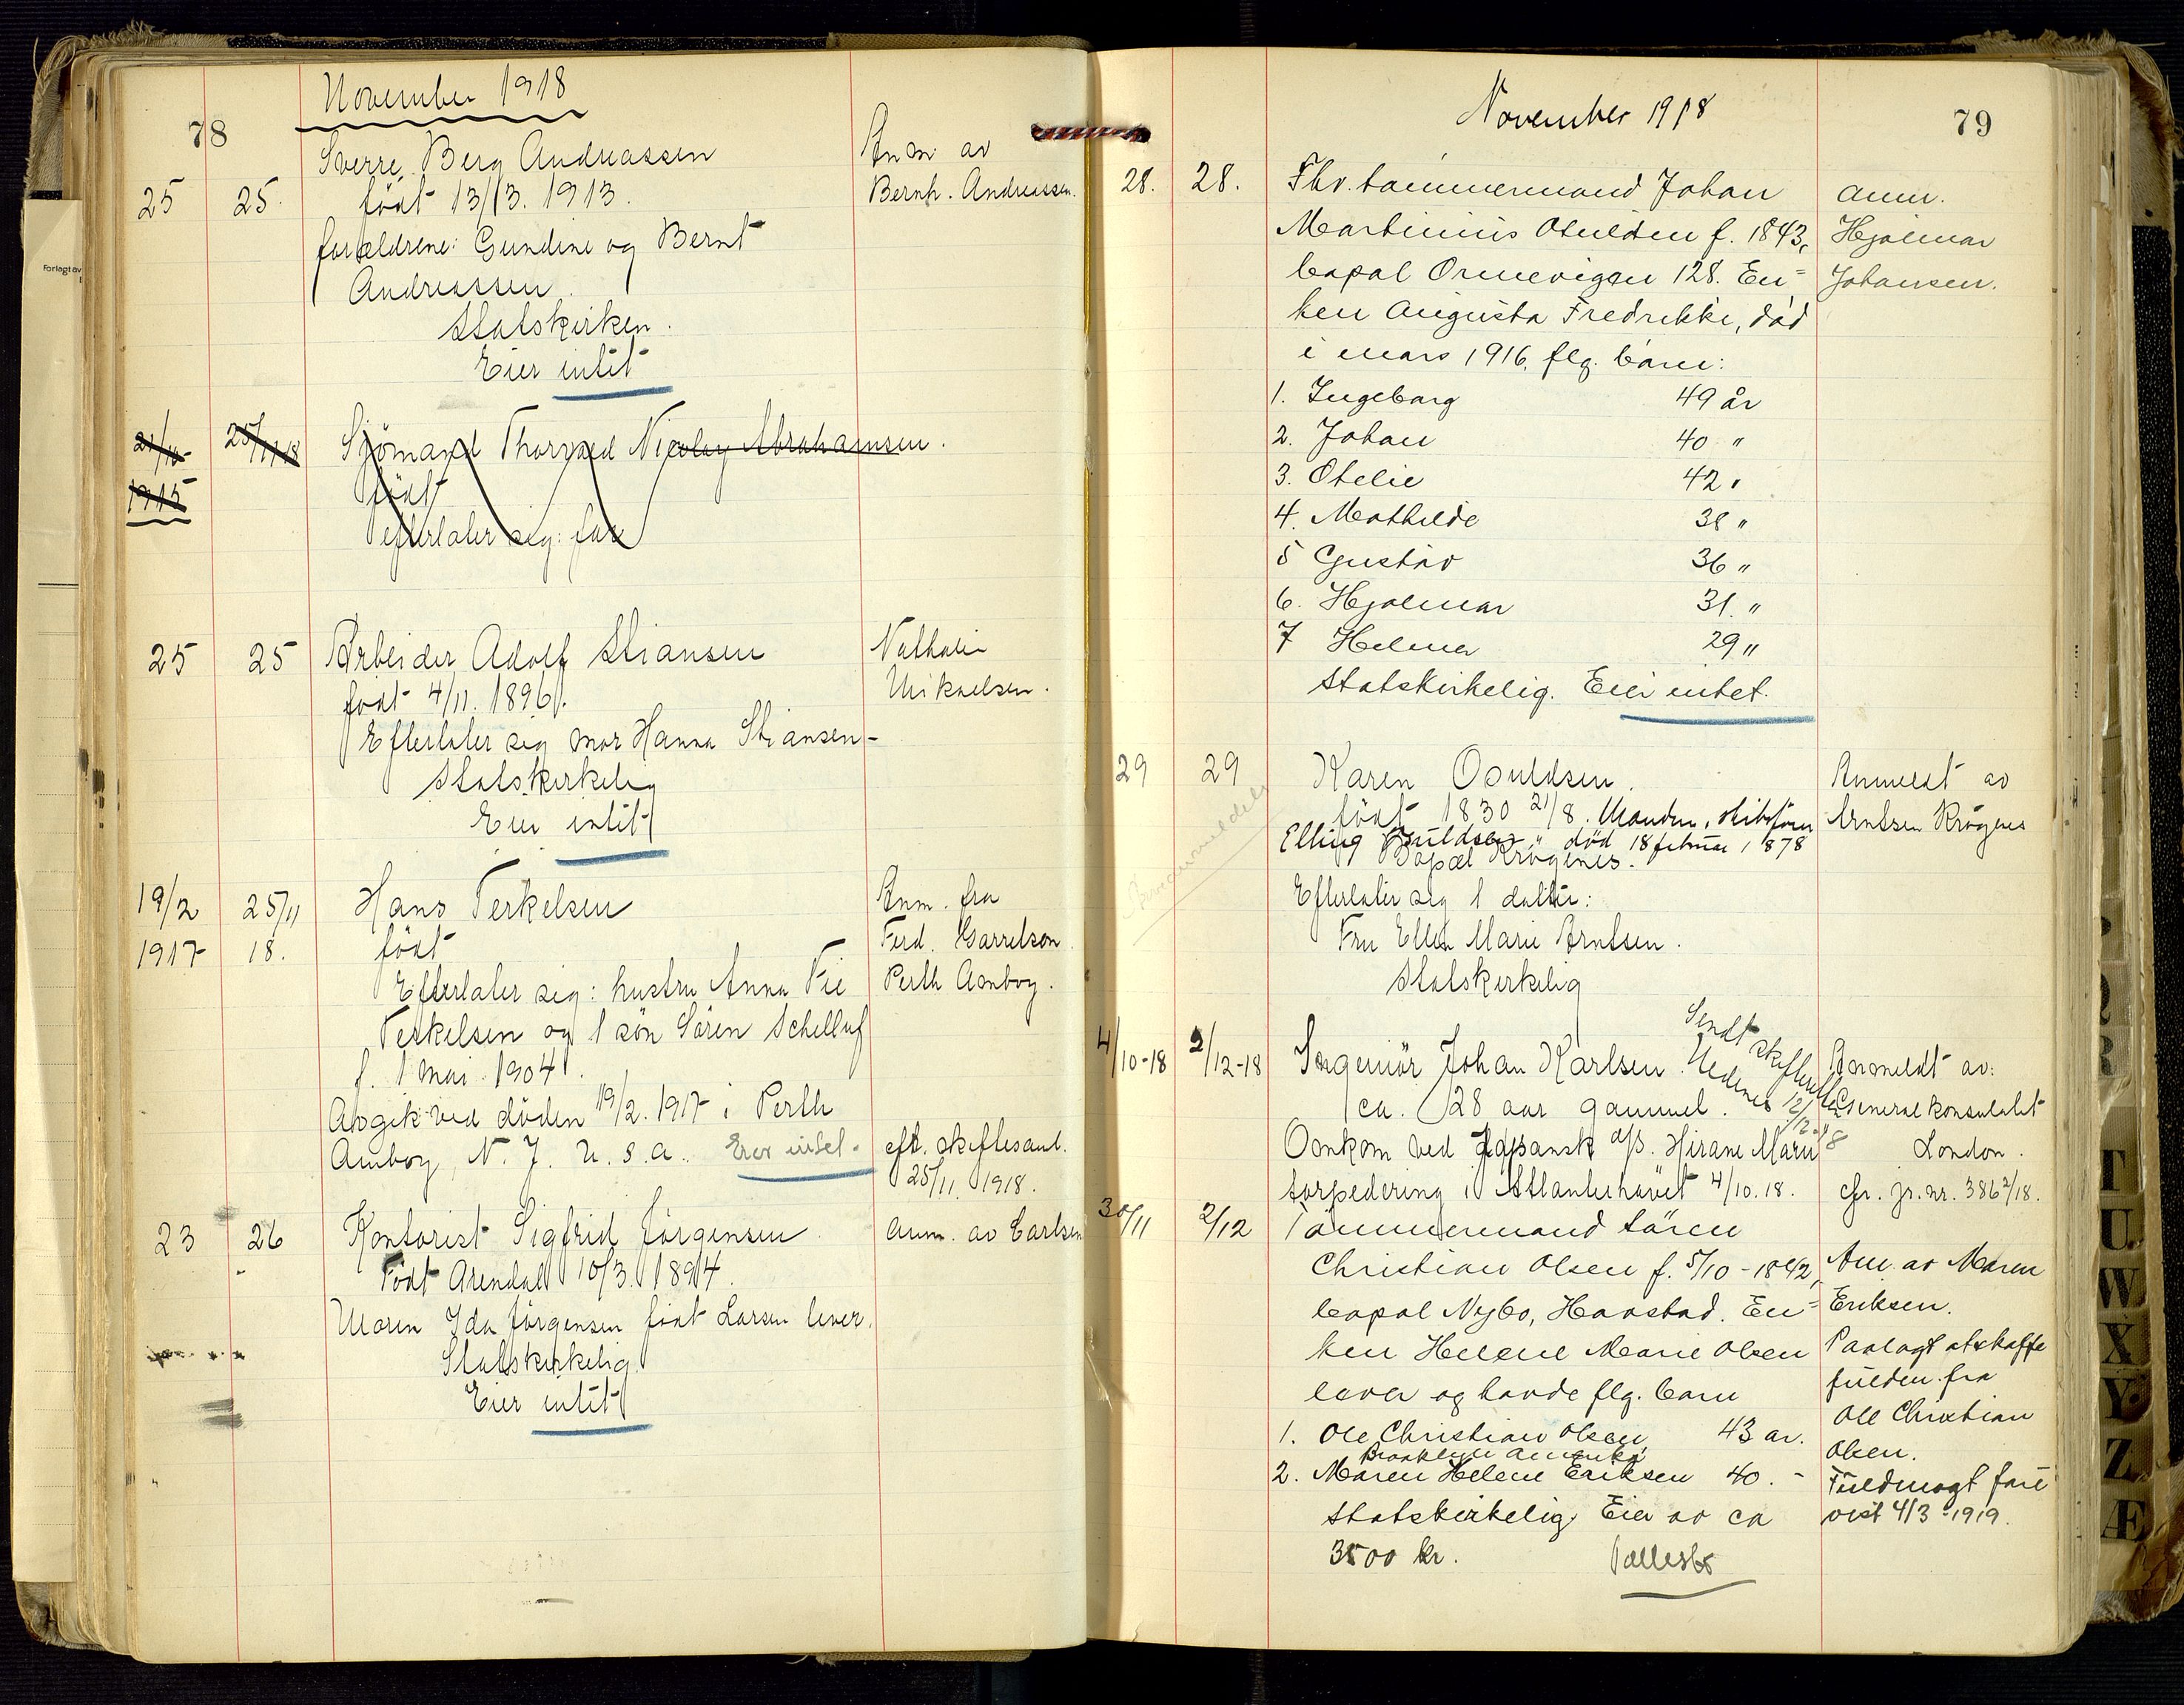 November 1918
78
Sverre Berg Andreassen
Anm. av
25 25. født 13/13. 1913.
Bernh. Andreassen.
forældrene: Gundine og Bernt
Andreassen.
Statskirken.
Eier intet
21/10 25/11 18 Sjömand Thorvald Nicolay Abrahamsen.
1915 født
efterlater sig: fare
25 25 Arbeider Adolf Stiansen
Nathalie
født 4/11. 1896.
Mikaelsen.
Efterlater sig mor Hanna Stiansen-
Statskirkelig
Eier intet
19/2 25/11 Hans Terkelsen
Anm. fra
1917 18. født
Ferd. Garrelson
Efterlater sig: hustru Anna Fie
Perth Amboy.
Terkelsen og 1 søn Sören Schelluf
f. 1 mai 1904.
Avgik ved døden 19/2. 1917 i Perth
Amboy, N. J. U. S. A. Eier intet.
eft. skiftesaml.
25/11. 1918.
23 26 Kontorist Sigfrid Jörgensen
Anm. av Carlsen
Født Arendal 10/3. 1894.
Moren Ida Jörgensen født Larsen lever.
Statskirkelig
Eier intet
November 1918
79
28. 28. Fhv. tømmermand Johan
Anm.
Martinius Osuldsen f. 1843,
Hjalmar
bopal Ormevigen 128. En=
Johansen.
ken Augusta Fredrikke, død
i mars 1916, flg. barn:
1. Ingeborg 49 år
2. Johan 40 "
3. Otelie 42 "
4. Mathilde 38 "
5 Gustav 36 "
6. Hjalmar 31. "
7 Helmer 29 "
Statskirkelig. Eier intet.
29 29 Karen Osuldsen.
Anmeldt av
født 1830 21/8. Manden, skibsfører
Arntsen Krögenes
Elling Osuldsen, død 18 februar 1878
Bopæl Krögenes.
Efterlater sig 1 datter:
Fru Ellen Marie Arntsen.
Statskirkelig
Sendt skifteretten
Nedenes 12/12-18
4/10-18 2/12-18 Ingeniör Johan Karlsen.
Anmeldt av:
ca. 28 aar gammel.
Generalkonsulatet
Omkom ved japansk d/s. Hirano Maru
London.
torpedering i Atlanterhavet 4/10.18.
cfr. jr. nr. 3862/18.
30/11 2/12 Tømmermand Sören
Christian Olsen f. 5/10-1842,
Anm. av Maren
bopal Nybo, Havstad. En=
Eriksen.
ken Helene Marie Olsen
Paalagt at skaffe
lever og havde flg. barn
fuldm. fra
1. Ole Christian Olsen 43 ar.
Ole Christian
Brooklyn Amerika
Olsen.
2. Maren Helene Eriksen 40. -
Fuldmagt fore
Statskirkelig. Eier av ca
vist 4/3-1919.
3500 kr.